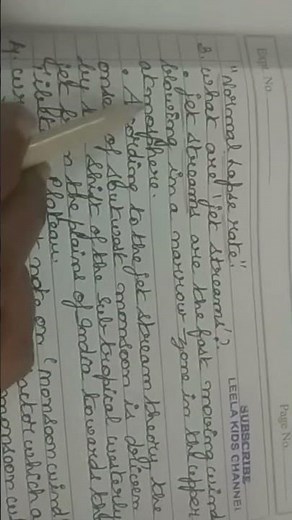 Page No.
Page No.
SUBSCRIBE
LEELA KIDS CHANNEL
"Normal Lapse rate".
3. What are 'jet streams'?
• jet streams are the fast moving wind
blowing in a narrow zone in the upper
atmosphere.
• According to the jet stream theory, the
onset of southwest monsoon is driven
by shift of the sub tropical westerly
jet from the plains of India towards the
Tibet Plateau.
4. note on (monsoon wind
actor which a
monsoon